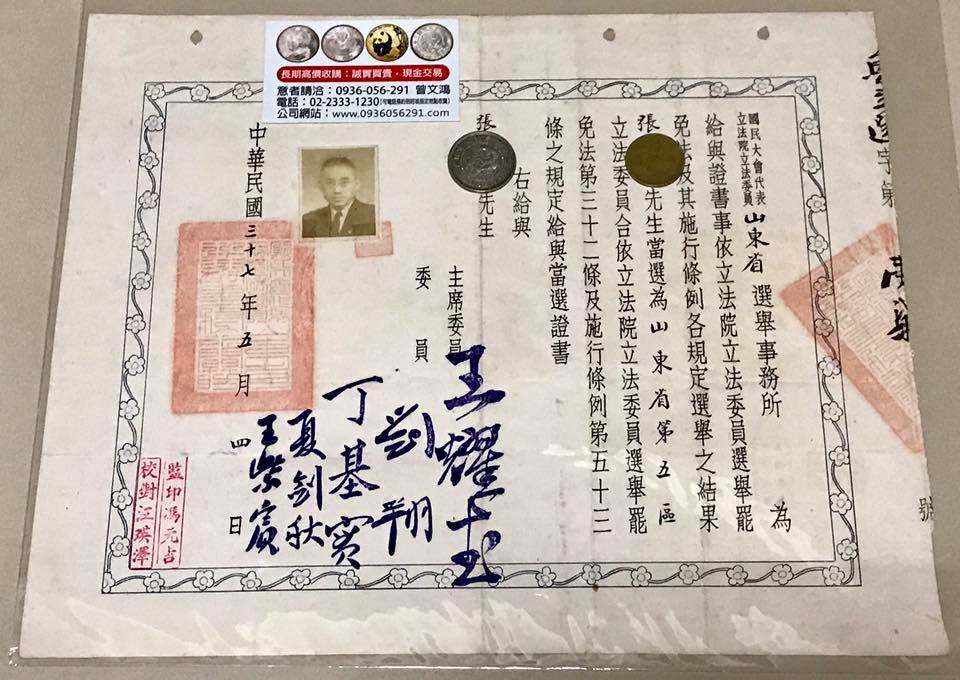 長期高價收購：誠實買賣，現金交易
意者請洽：0936-056-291 曾文鴻
電話：02-2333-1230
公司網站：www.0936056291.com
字第
號
國民大會代表
立法院立法委員
山東省選舉事務所 為
給與證書事依立法院立法委員選舉罷
免法及其施行條例各規定選舉之結果
張 先生當選為山東省第五區
立法委員合依立法院立法委員選舉罷
免法第三十二條及施行條例第五十三
條之規定給與當選證書
右給與
張 先生
主席委員 王耀武
委員
劉翔
丁基實
夏劍秋
王崇實
中華民國三十七年五月四日
監印馮元吉
校對汪瑛澤